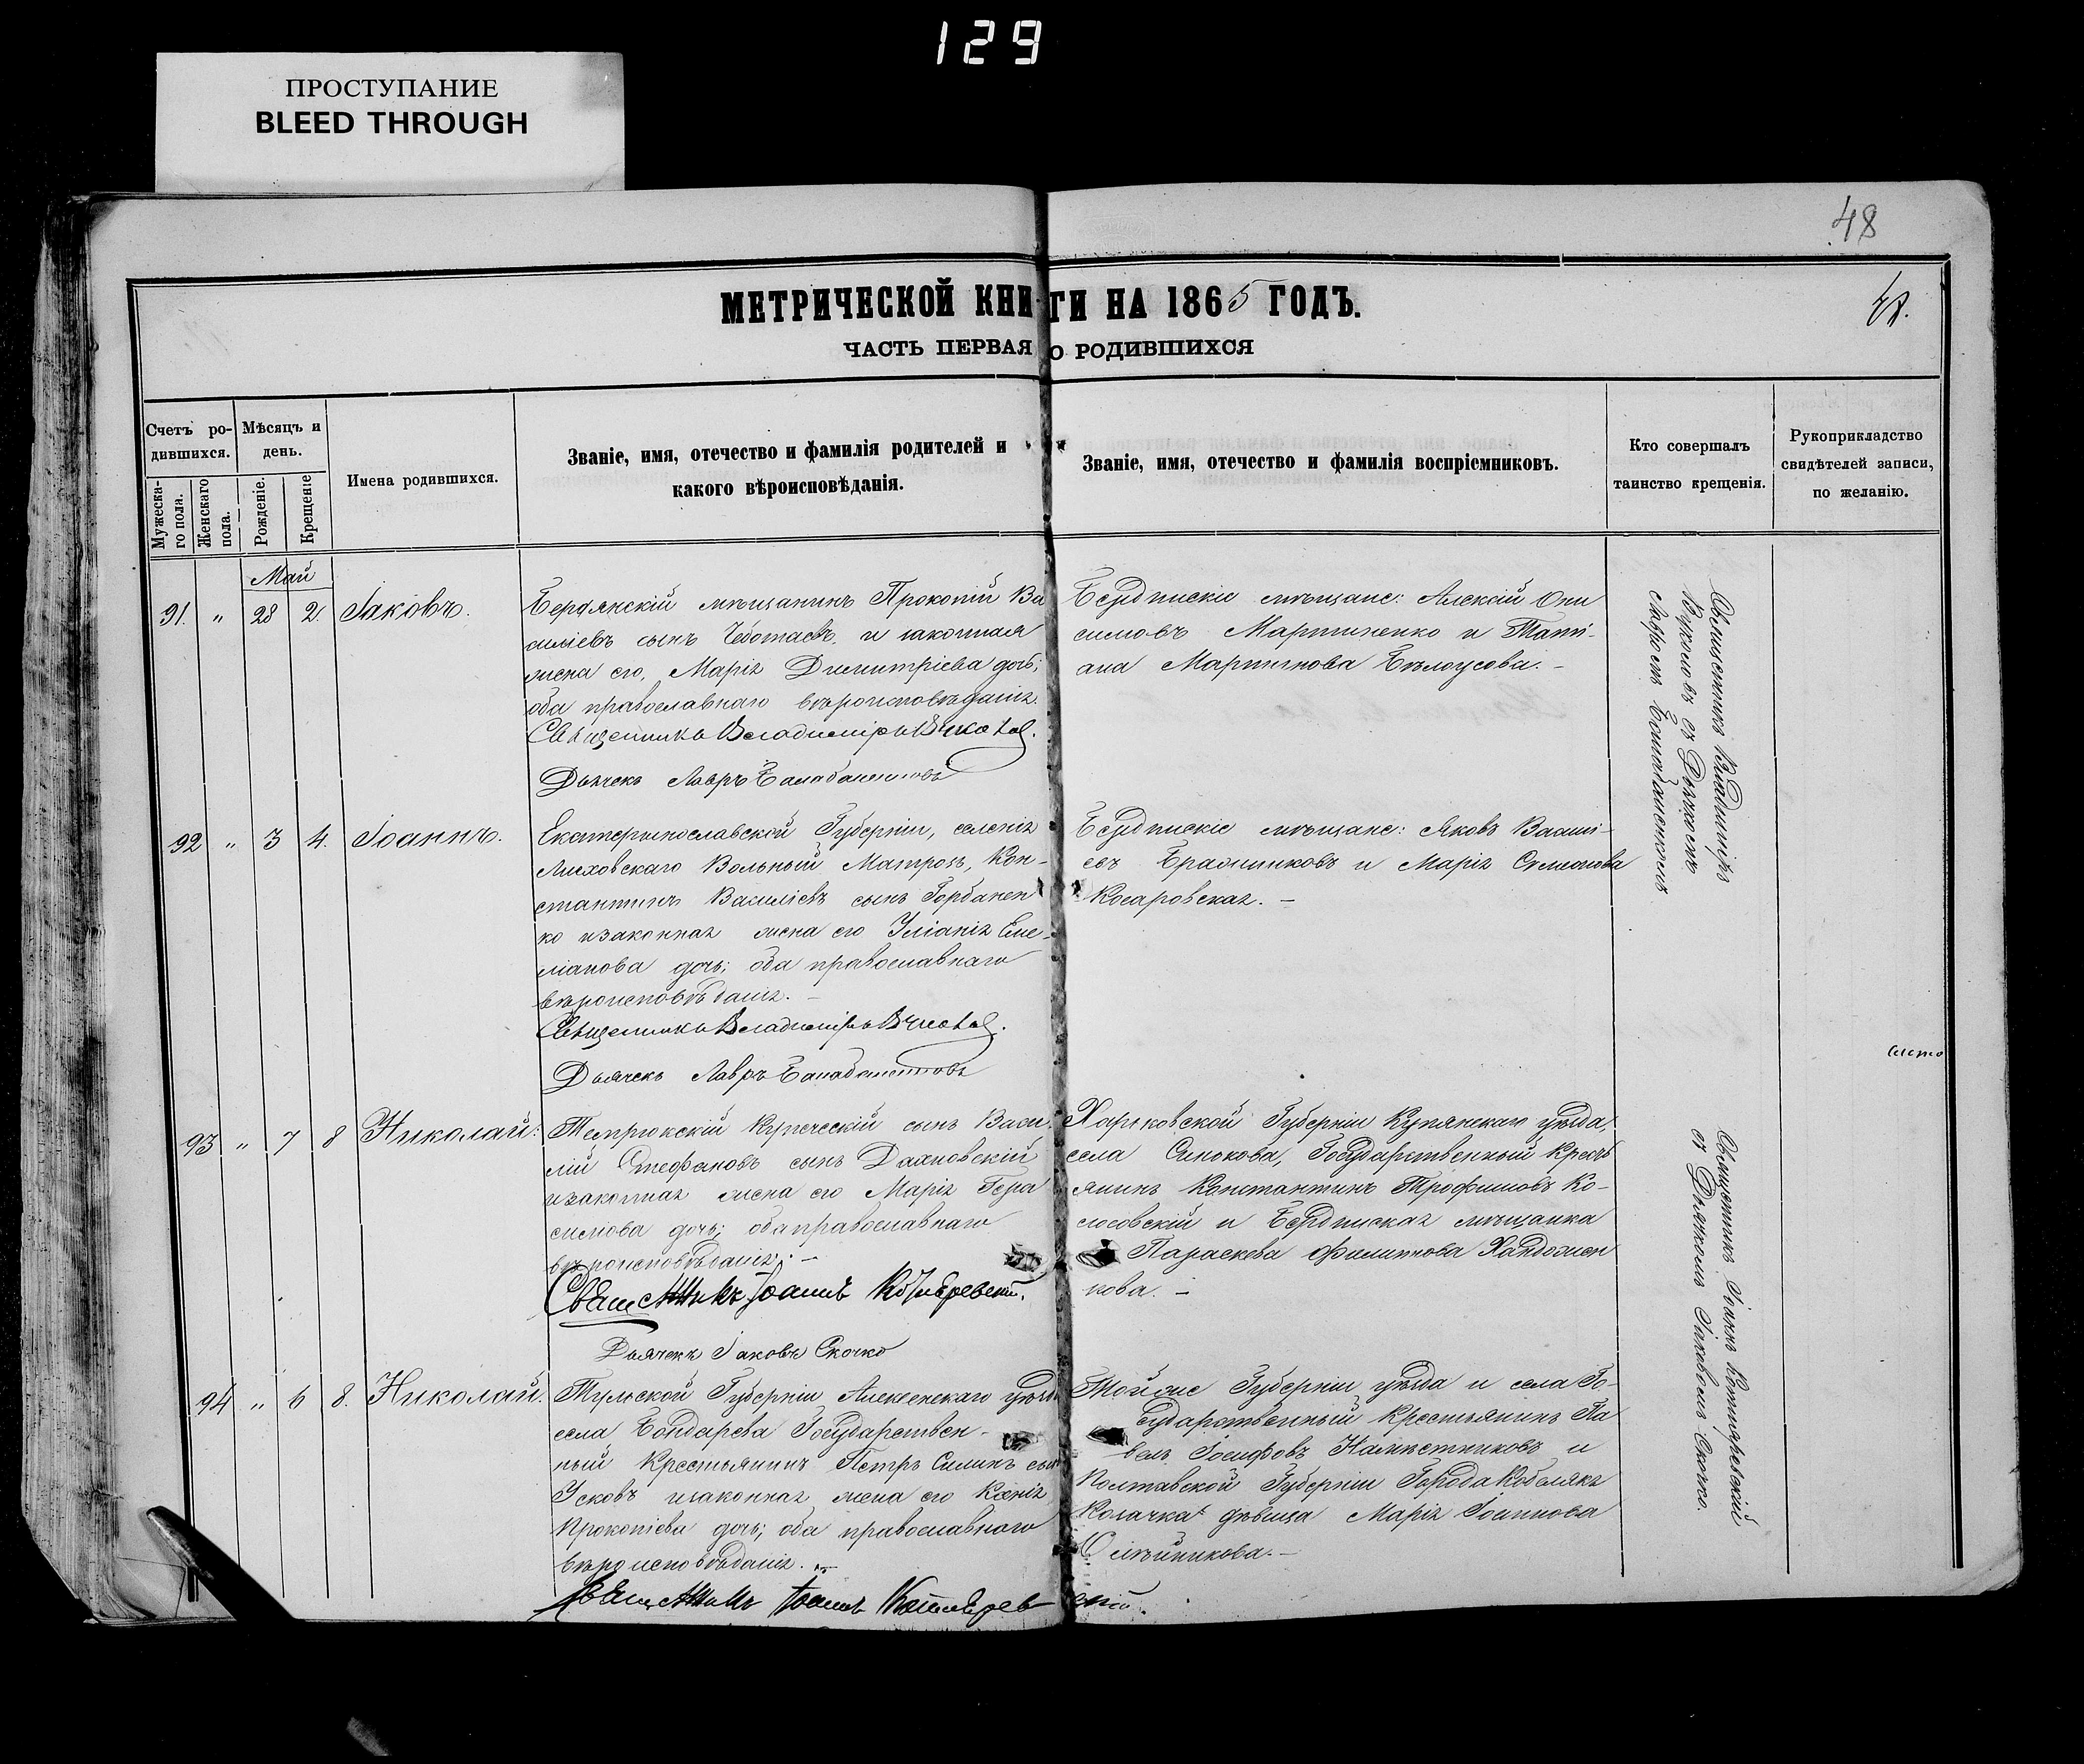 129
ПРОСТУПАНИЕ
BLEED THROUGH
48
МЕТРИЧЕСКОЙ КНИГИ НА 1865 ГОДЪ.
ЧАСТЬ ПЕРВАЯ О РОДИВШИХСЯ
Счетъ ро-
дившихся.
Мужеска-
го пола.
Женскаго
пола.
Мѣсяцъ и
день.
Рожденіе.
Крещеніе
Имена родившихся.
Званіе, имя, отечество и фамилія родителей и
какого вѣроисповѣданія.
Званіе, имя, отечество и фамилія воспріемниковъ.
Кто совершалъ
таинство крещенія.
Рукоприкладство
свидѣтелей записи,
по желанію.
Май
91. " 28 2. Іаковъ.
Бердянскій мѣщанинъ Прокопій Ва
силіевъ сынъ и законная
жена его, Марія Димитріева дочь;
оба православнаго вѣроисповѣданія.
Священникъ Владиміръ
Дьячекъ Лавръ
Бердянскіе мѣщане: Алексій Они
симовъ Мартиненко и Таті-
ана Мартинова Бѣлоусова. -
Священникъ Владиміръ
съ Дьячкомъ
Лавромъ
92 " 3 4. Іоаннъ.
Екатеринославской Губерніи, селенія
Лиховскаго Вольный Матрозъ, Кон-
стантинъ Василіевъ сынъ Горбанен
ко изаконная жена его Уліанія Еме-
ліанова дочь; оба православнаго
вѣроисповѣданія. -
Священникъ Владиміръ
Дьячекъ Лавръ
Бердянскіе мѣщане: Яковъ Василі-
евъ Бражниковъ и Марія Семенова
Косаровская. -
93 " 7 8 Николай.
Темрюкскій Купеческій сынъ Васи
лій Стефановъ сынъ Дахновскій
изаконная жена его Марія Гера
симова дочь; оба православнаго
вѣроисповѣданія. -
Священникъ Іоаннъ Котляревскій.
Дьячекъ Іаковъ Скочко
Харьковской Губерніи Купянскаго уѣзда,
села Сенькова, Государственный Кресть
янинъ Константинъ Трофимовъ Ко-
лосовскій и Бердянская мѣщанка
Параскева Филипова
кова. -
Священникъ Іоаннъ Котляревскій
съ Дьячкомъ Іаковомъ Скочко.
94 " 6 8. Николай.
Тульской Губерніи Алексенскаго уѣзда
села Бондарева Государствен-
ный Крестьянинъ Петръ Силинъ сынъ
Усковъ изаконная жена его Ксенія
Прокопіева дочь; оба православнаго
вѣроисповѣданія. -
Священникъ Іоаннъ Котляревскій.
Тойже Губерніи уѣзда и села Го-
сударственный Крестьянинъ Па
велъ Іосифовъ Намѣстниковъ и
Полтавской Губерніи Города Кобелякъ
Козачка дѣвица Марія Іоаннова
Олѣйникова. -